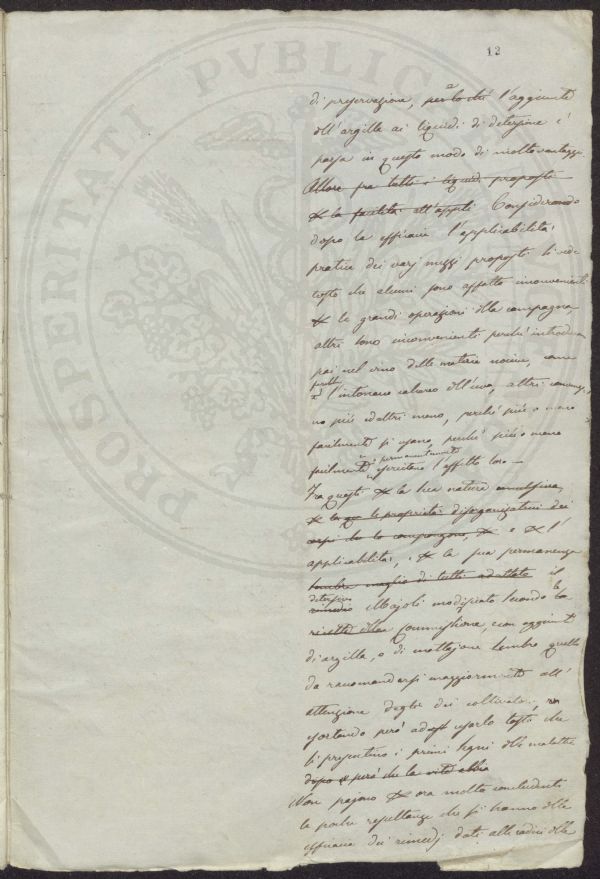 12
di preservazione, per lo chè l'aggiunta
all'argilla ai liquidi di detersione è
passa in questo modo di molto vantaggi
Allora fra tutti i liquidi proposti
la facilità all'appli Considerando
dopo la efficacia l'applicabilità
pratica dei varj mezzi proposti si vede
tosto che alcuni sono affatto inconvenienti
le grandi operazioni della campagna,
altri sono inconvenienti perchè introducon
poi nel vino delle materie nocive, come
l'intonaco calcareo dell'uva, altri convengo
no più ed altri meno, perchè più o meno
facilmente si usano, perchè più o meno
permanentemente
facilmente esercitano l'effetto loro —
Fra questi la sua natura
le proprietà disorganizzatrici dei
corpi che la compongono, e l'
applicabilità, e la sua permanenza
sembra meglio di tutti adattato il
detersivo
rimedio Majoli modificato secondo la
ricetta della Commissione, con aggiunta
di argilla, o di mattajone sembra quello
da raccomandarsi maggiormente all'
attenzione degli dei coltivatori,
esortando però ad usarlo tosto che
si presentino i primi segni della malattia
dopo però che la vite abbia
Non pajono ora molto concludenti
le poche resultanze che si hanno della
efficacia dei rimedj dati alle radici delle
PROSPERITATI PVBLIC